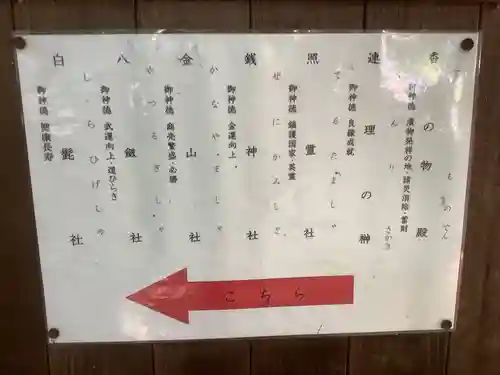 香の物殿
こうのものでん
御神徳 漬物発祥の地・諸災消除・蓄財
連理の榊
れんりのさかき
御神徳 良縁成就
照霊社
てるたましゃ
御神徳 鎮護国家・英霊
銭神社
ぜにかみしゃ
御神徳 金運向上・
金山社
かなやましゃ
御神徳 商売繁盛・必勝
八剱社
やつるぎしゃ
御神徳 武運向上・道ひらき
白髭社
しらひげしゃ
御神徳 健康長寿
こちら